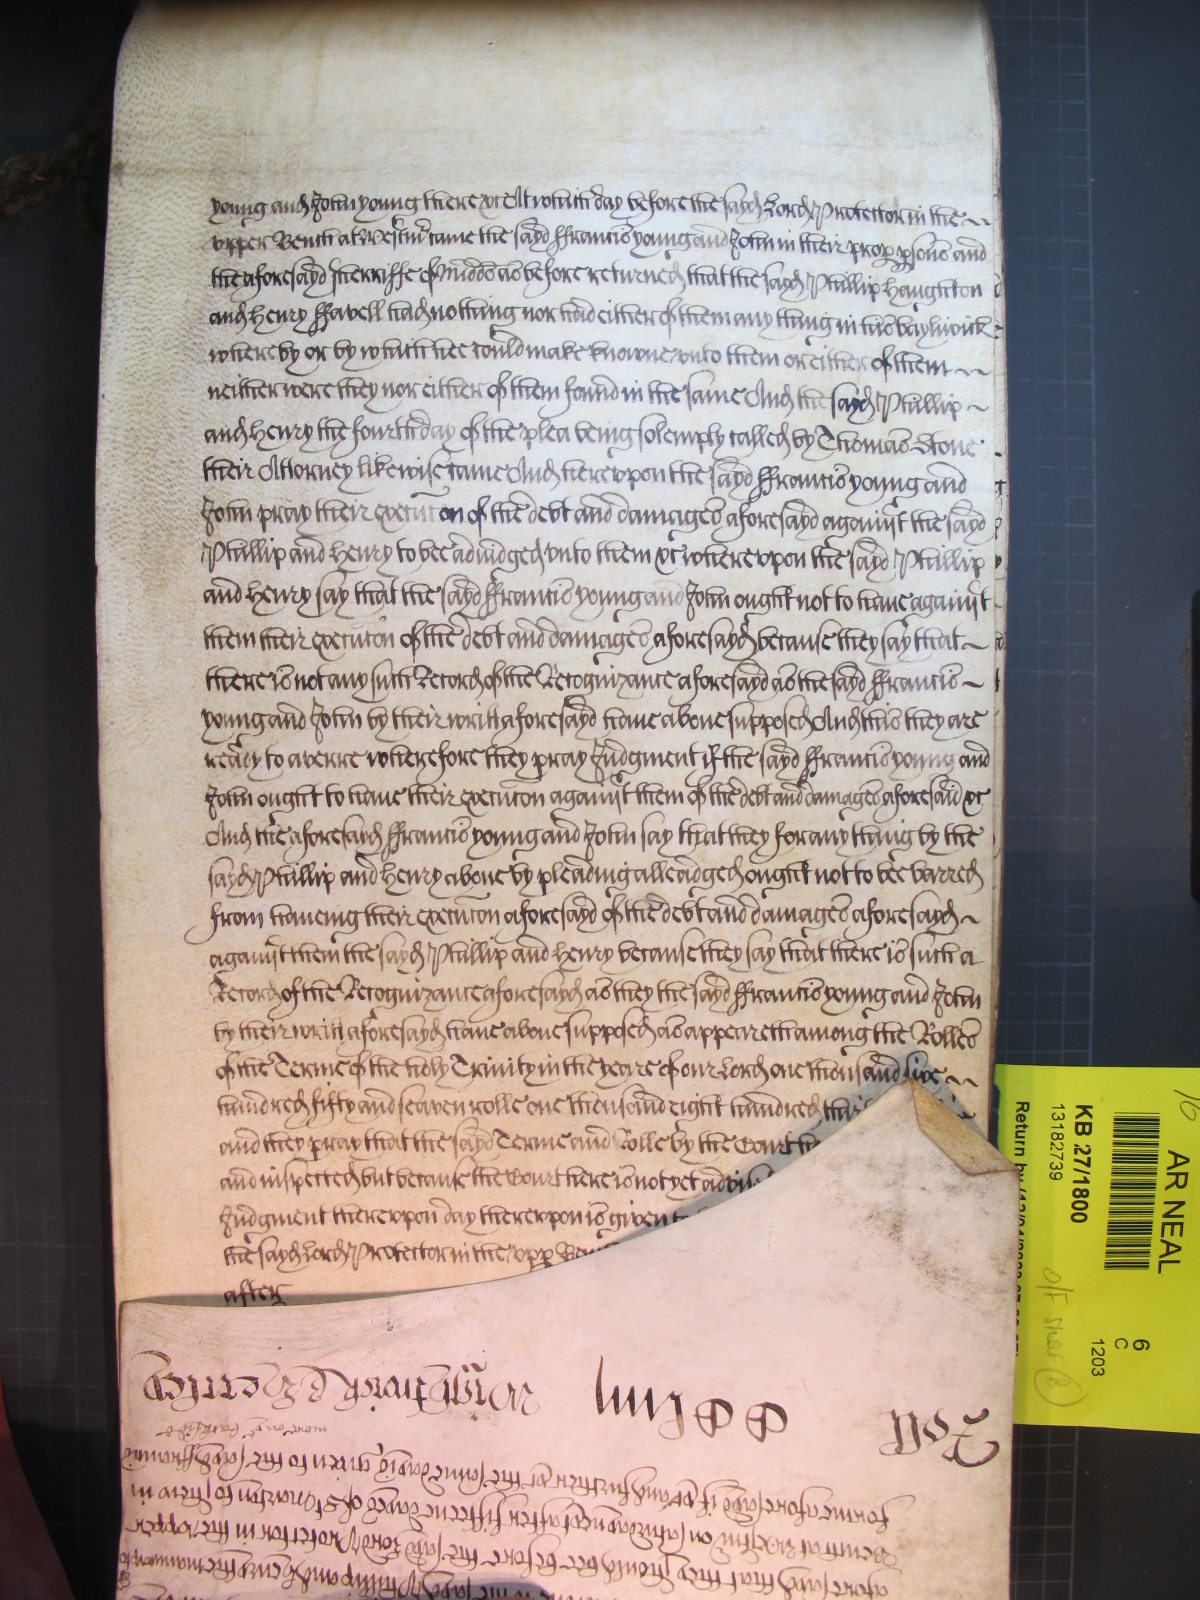 young and John young there &c At which day before the sayd Lord Protector in the
upper Bench at Westm̃ came the sayd ffrancis young and John in their prop psons and
the aforesayd sherriffe of Midds as before returned that the sayd Phillip Haughton
and Henry ffavell had nothing nor had either of them any thing in his baylywick
whereby or by which hee could make knowne unto them or either of them
neither were they nor either of them found in the same And the sayd Phillip
and Henry the fourth day of the plea being solemply called by Thomas Stone
their Attorney likewise came And thereupon the sayd ffrancis young and
John pray their execut̃on of the debt and damages aforesayd against the sayd
Phillip and Henry to bee adiudged unto them &c whereupon the sayd Phillip
and Henry say that the sayd ffrancis young and John ought not to have against
them their execut̃on of the debt and damages aforesayd because they say that
there is not any such Record of the Recognizance aforesayd as the sayd ffrancis
young and John by their writt aforesayd have above supposed And this they are
ready to averre wherefore they pray Judgment if the sayd ffrancis young and
John ought to have their execut̃on against them of the debt and damages aforesaid &c
And the aforesayd ffrancis young and John say that they for any thing by the
sayd Phillip and Henry above by pleading alleadged ought not to bee barred
from haveing their execut̃on aforesayd of the debt and damages aforesayd
against them the sayd Phillip and Henry because they say that there is such a
Record of the Recognizance aforesayd as they the sayd ffrancis young and John
by their writt aforesayd have above supposed as appeareth among the Rolles
of the Terme of the holy Trinity in the yeare of our Lord one thousand sixe
hundred fifty and seaven rolle one thousand eight hundred
and they pray that the sayd Terme and Rolle by the Court
and inspected but because the Court there is not yet
Judgment thereupon day thereupon is given
the sayd Lord Protector in the upp
after
AR NEAL
6
C
1203
KB 27/1800
13182739
Return by
aforesayd that they should bee before the sayd Lord Protector in the upper
Bench at Westm̃ on
forme aforesayd if &c And further &c the same day is given to the sayd ffrancis
more on backside